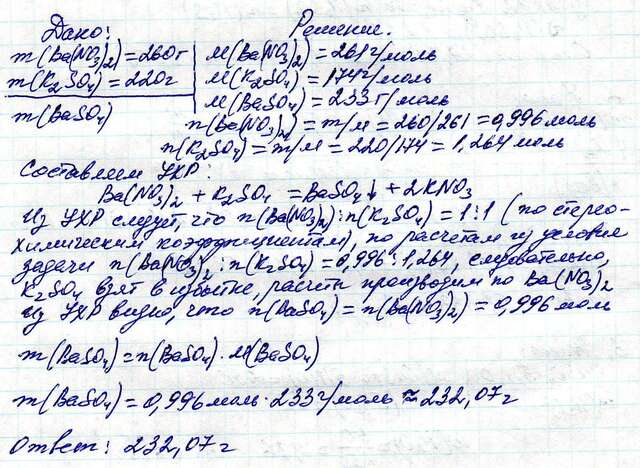 Дано:
Решение.
m(Ba(NO3)2)=260г
M(Ba(NO3)2)=261г/моль
m(K2SO4)=220г
M(K2SO4)=174г/моль
m(BaSO4)
M(BaSO4)=233г/моль
n(Ba(NO3)2)=m/M=260/261=0,996моль
n(K2SO4)=m/M=220/174=1,264моль
Составляем УХР:
Ba(NO3)2 + K2SO4 = BaSO4↓ + 2KNO3
Из УХР следует, что n(Ba(NO3)2):n(K2SO4)=1:1 (по стерео-
химическим коэффициентам), по расчетам из условие
задачи n(Ba(NO3)2:n(K2SO4)=0,996:1,264, следовательно,
K2SO4 взят в избытке, расчеты производим по Ba(NO3)2
Из УХР видно, что n(BaSO4)=n(Ba(NO3)2)=0,996мол
m(BaSO4)=n(BaSO4)·M(BaSO4)
m(BaSO4)=0,996моль·233г/моль≈232,07г
Ответ: 232,07г